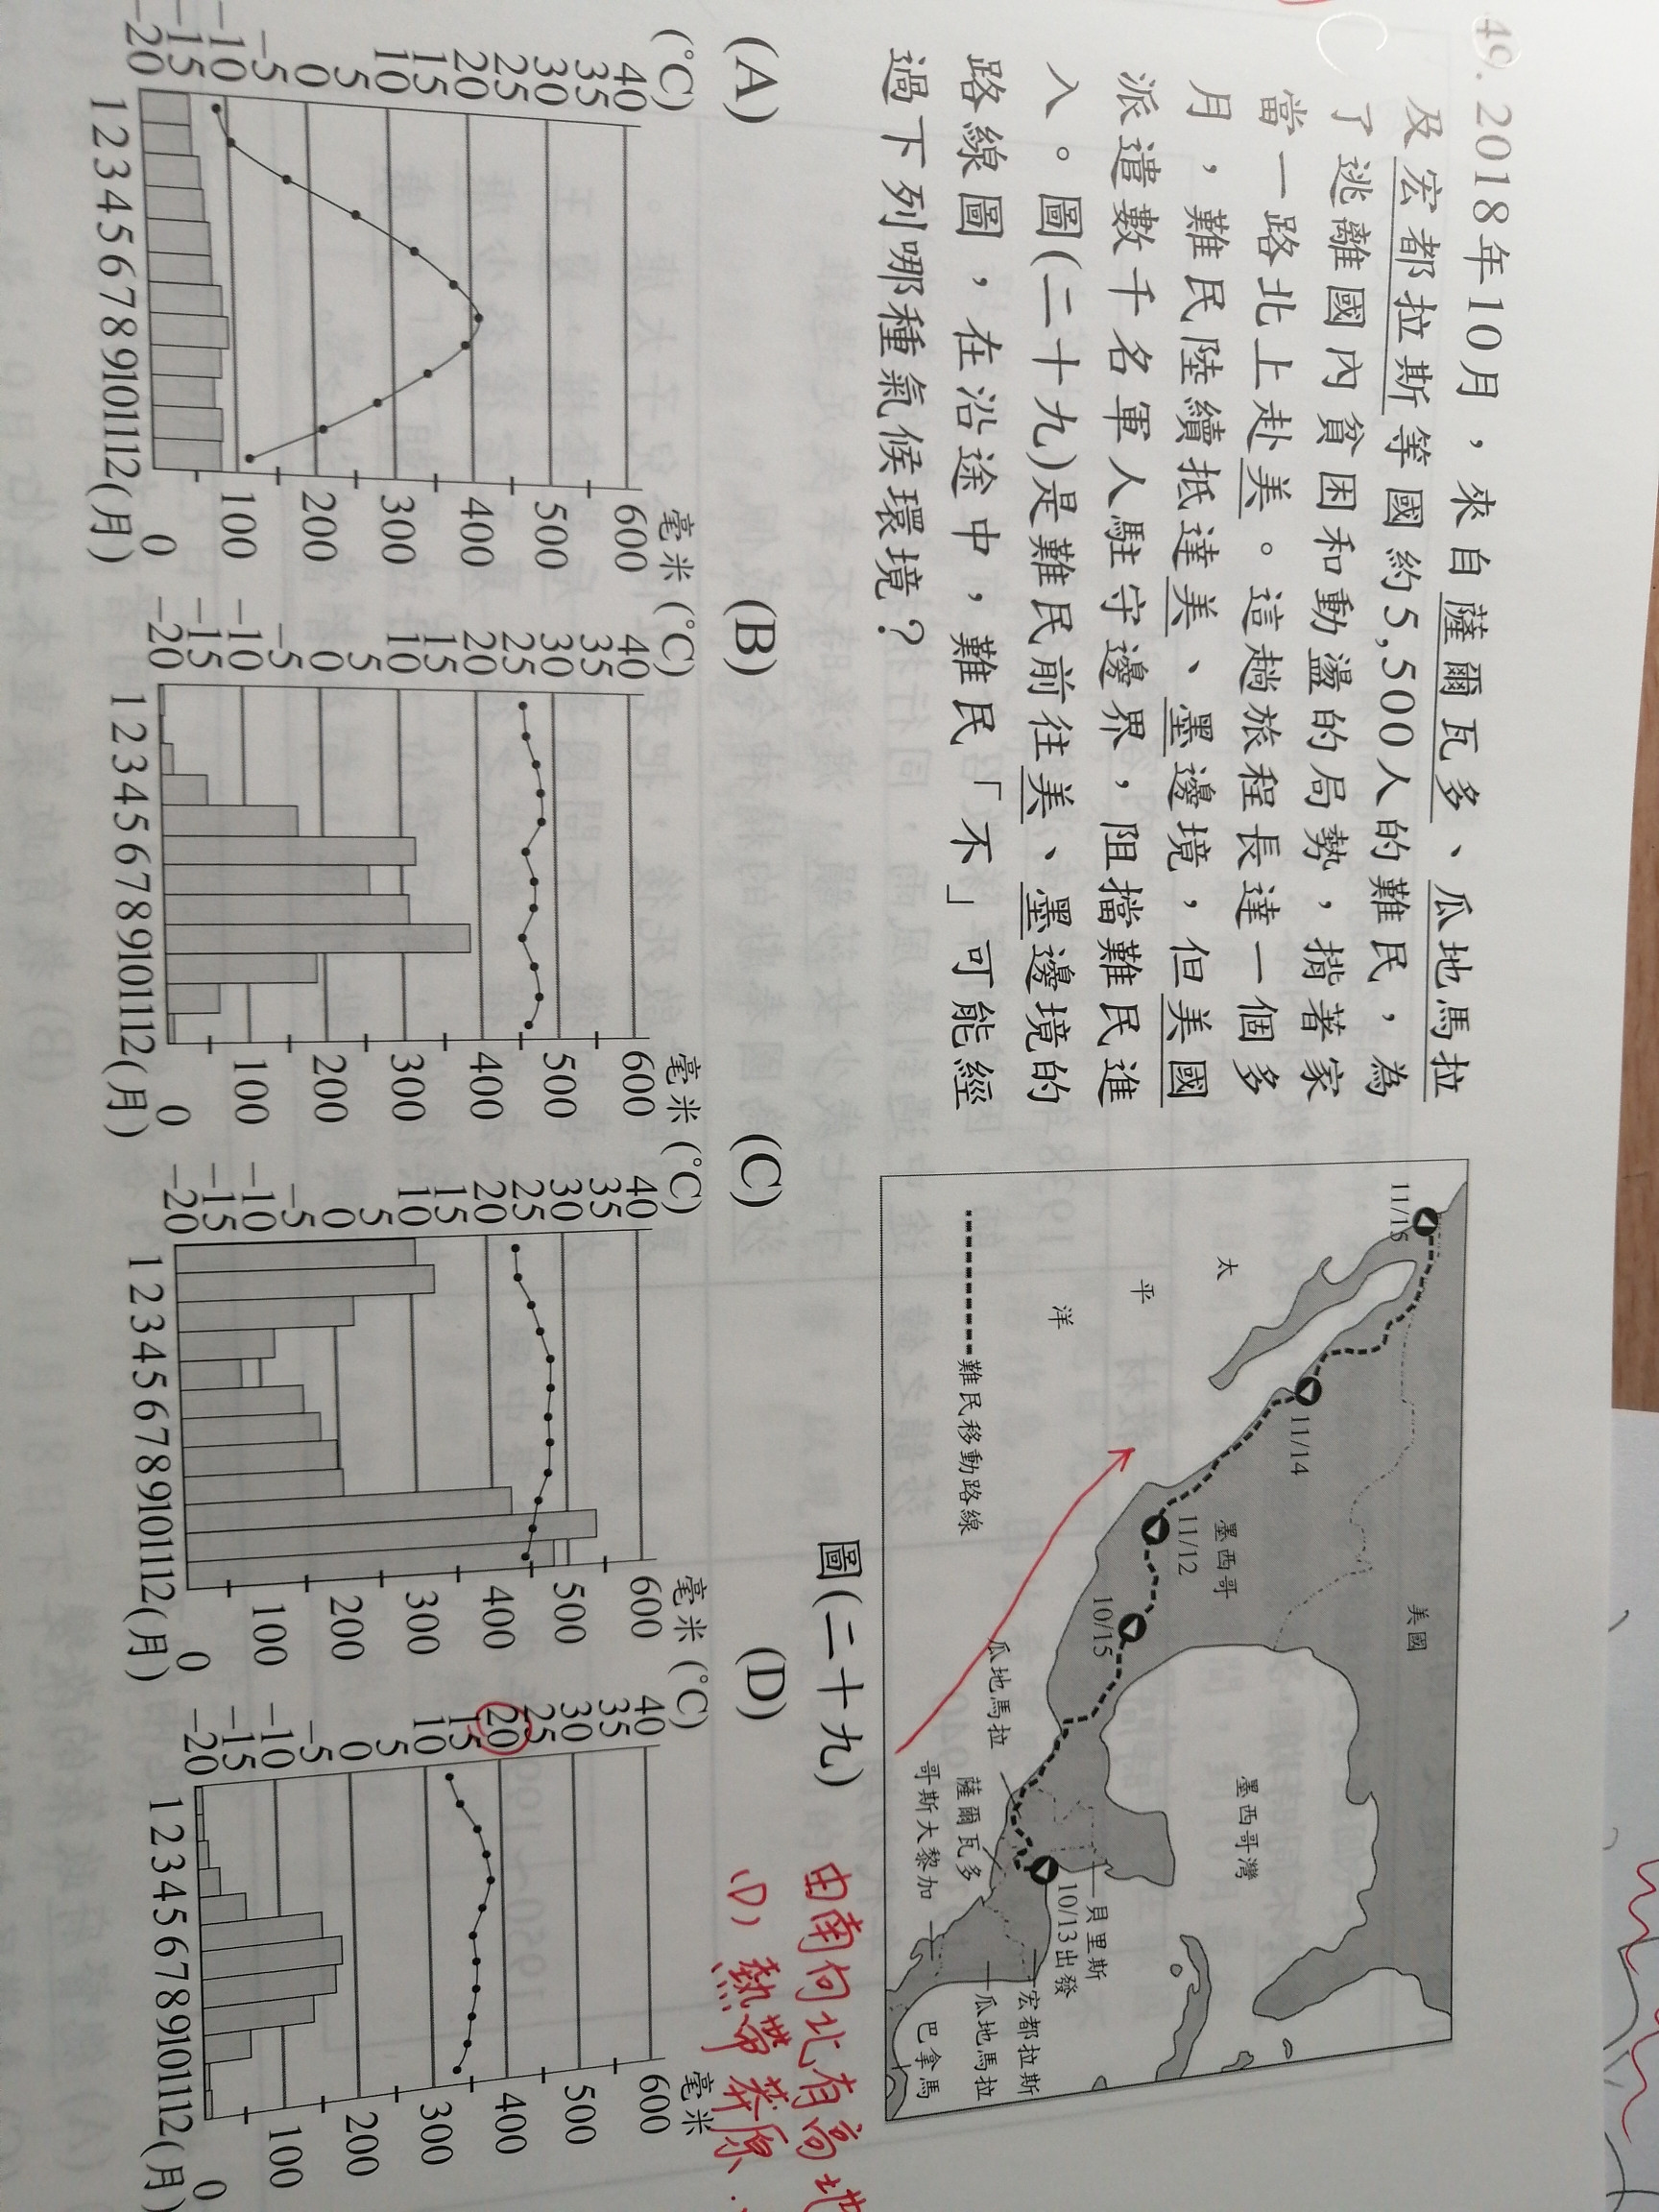 49. 2018年10月，來自薩爾瓦多、瓜地馬拉
及宏都拉斯等國約5,500人的難民，為
了逃離國內貧困和動盪的局勢，揹著家
當一路北上赴美。這趟旅程長達一個多
月，難民陸續抵達美、墨邊境，但美國
派遣數千名軍人駐守邊界，阻擋難民進
入。圖(二十九)是難民前往美、墨邊境的
路線圖，在沿途中，難民「不」可能經
過下列哪種氣候環境？
C
11/15
太
平
洋
11/14
美國
墨西哥
11/12
10/15
墨西哥灣
瓜地馬拉
薩爾瓦多
哥斯大黎加
貝里斯
10/13出發
宏都拉斯
瓜地馬拉
巴拿馬
難民移動路線
圖(二十九)
由南向北有高地
(1) 熱帶莽原
(A)
(°C)
40
35
30
25
20
15
10
5
0
-5
-10
-15
-20
毫米
600
500
400
300
200
100
0
1 2 3 4 5 6 7 8 9 10 11 12(月)
(B)
(°C)
40
35
30
25
20
15
10
5
0
-5
-10
-15
-20
毫米
600
500
400
300
200
100
0
1 2 3 4 5 6 7 8 9 10 11 12(月)
(C)
(°C)
40
35
30
25
20
15
10
5
0
-5
-10
-15
-20
毫米
600
500
400
300
200
100
0
1 2 3 4 5 6 7 8 9 10 11 12(月)
(D)
(°C)
40
35
30
25
20
15
10
5
0
-5
-10
-15
-20
毫米
600
500
400
300
200
100
0
1 2 3 4 5 6 7 8 9 10 11 12(月)